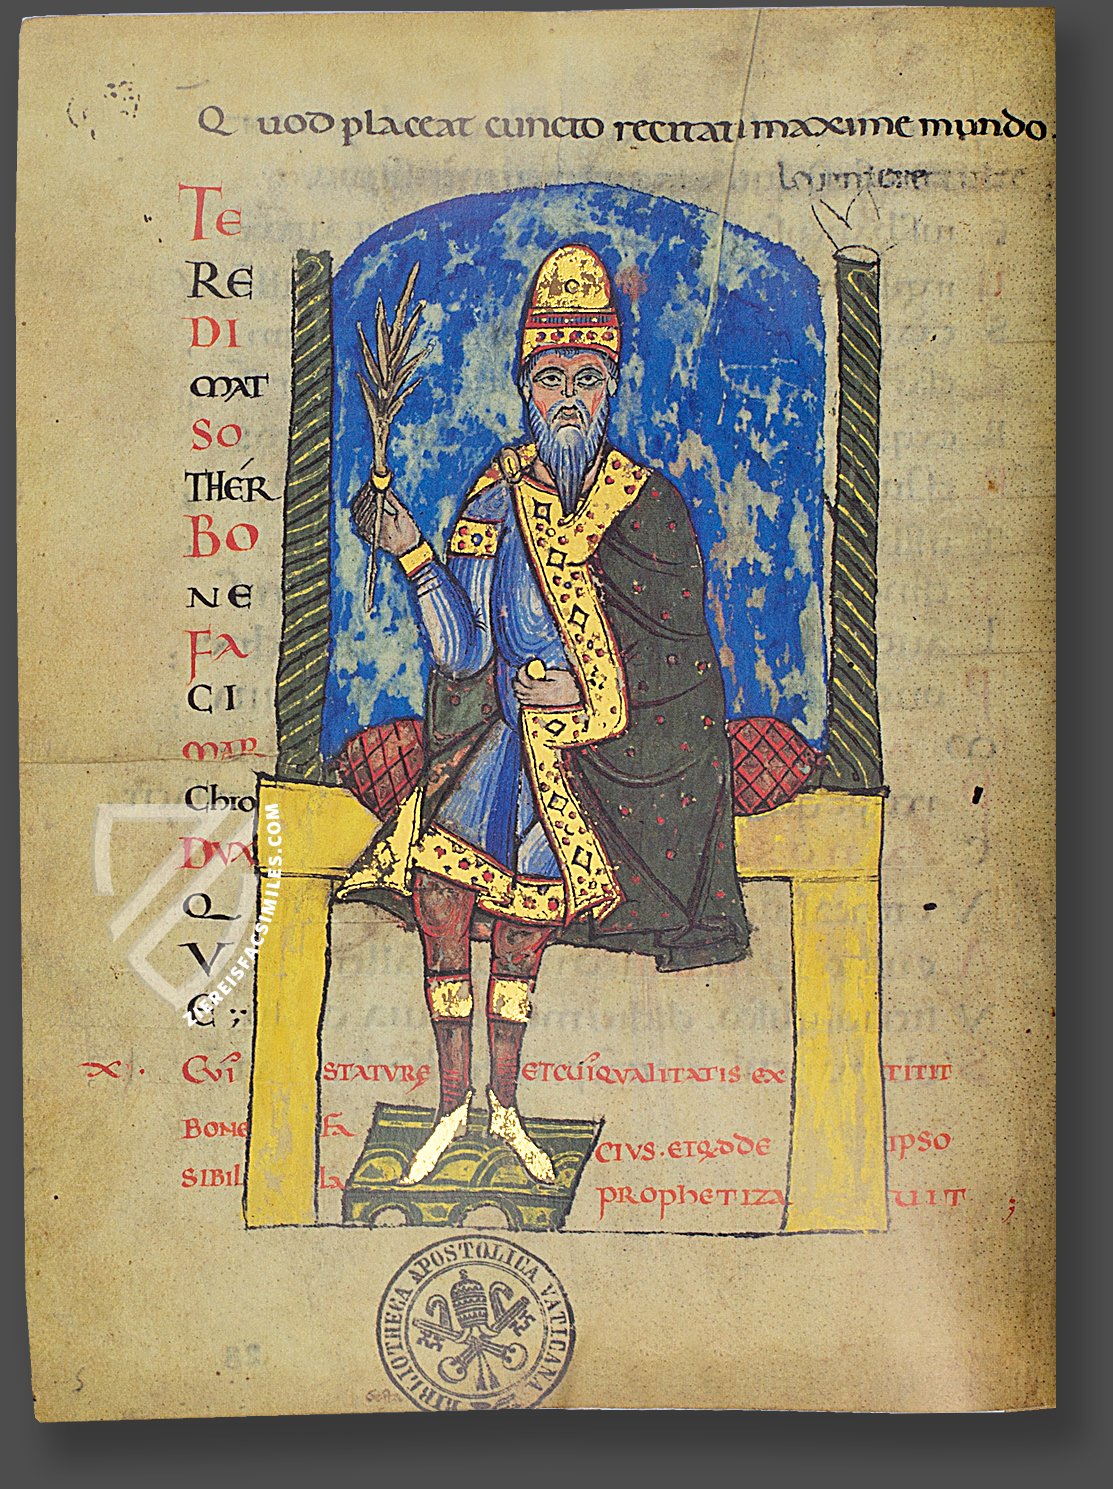 Quod placeat cuncto recitati maxime mundo.
TE
RE
DI
MAT
SO
THÉR
BO
NE
FA
CI
MAR
Chio
DVX
Q
V
E ;;
X. CVI STATVRE ET CVI QVALITATIS EX TITIT
BONE FA CIVS. ET QDDE IPSO
SIBIL LA PROPHETIZA UIT ;
BIBLIOTHECA APOSTOLICA VATICANA
ZIEREISFACSIMILES.COM